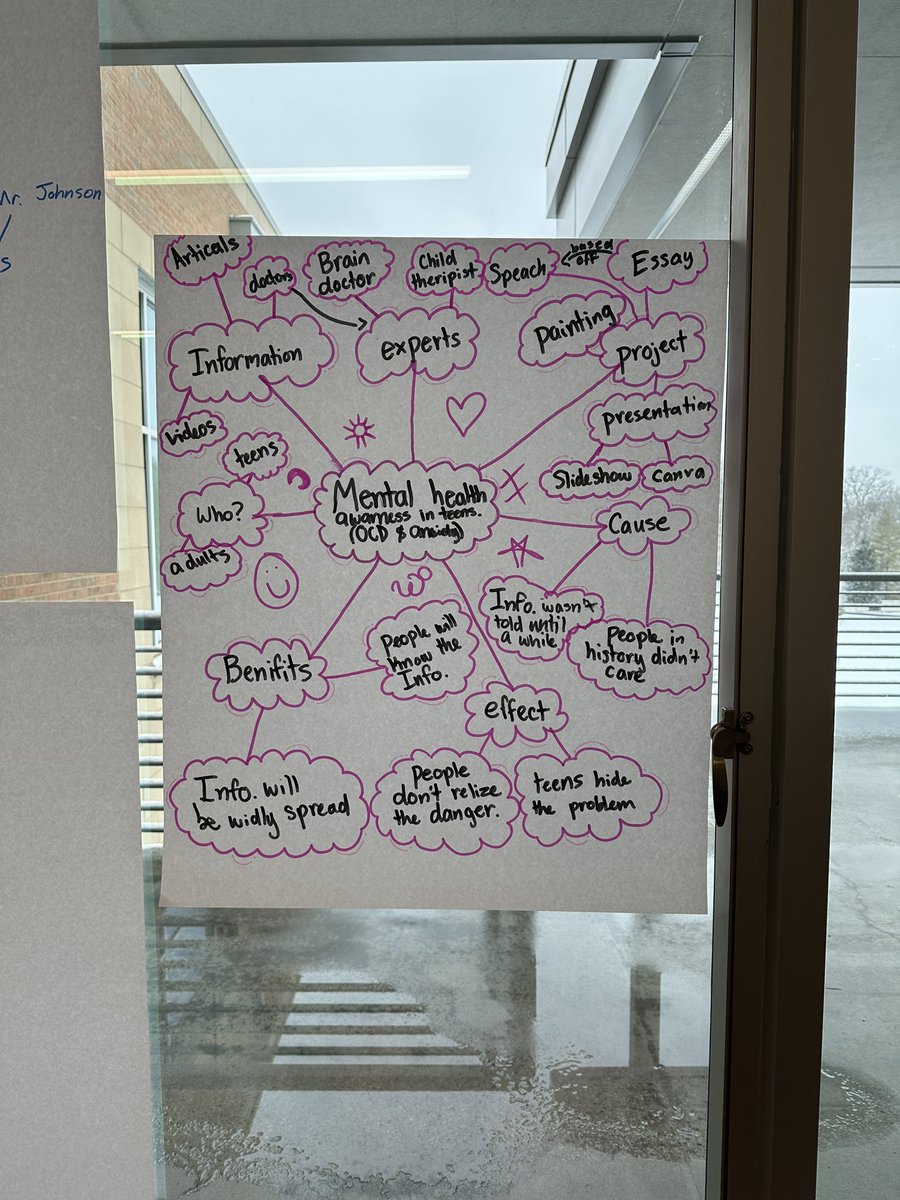 Mr. Johnson
s
Articals
doctors
Brain
doctor
Child
theripist
Speach
based
off
Essay
Information
experts
painting
project
videos
teens
presentation
Slideshow
Canva
Who?
adults
Mental health
awarness in teens.
(OCD & anxiety)
Cause
Info. wasn't
told until
a while
People in
history didn't
care
Benifits
People will
know the
Info.
effect
Info. will
be widly spread
People
don't relize
the danger.
teens hide
the problem